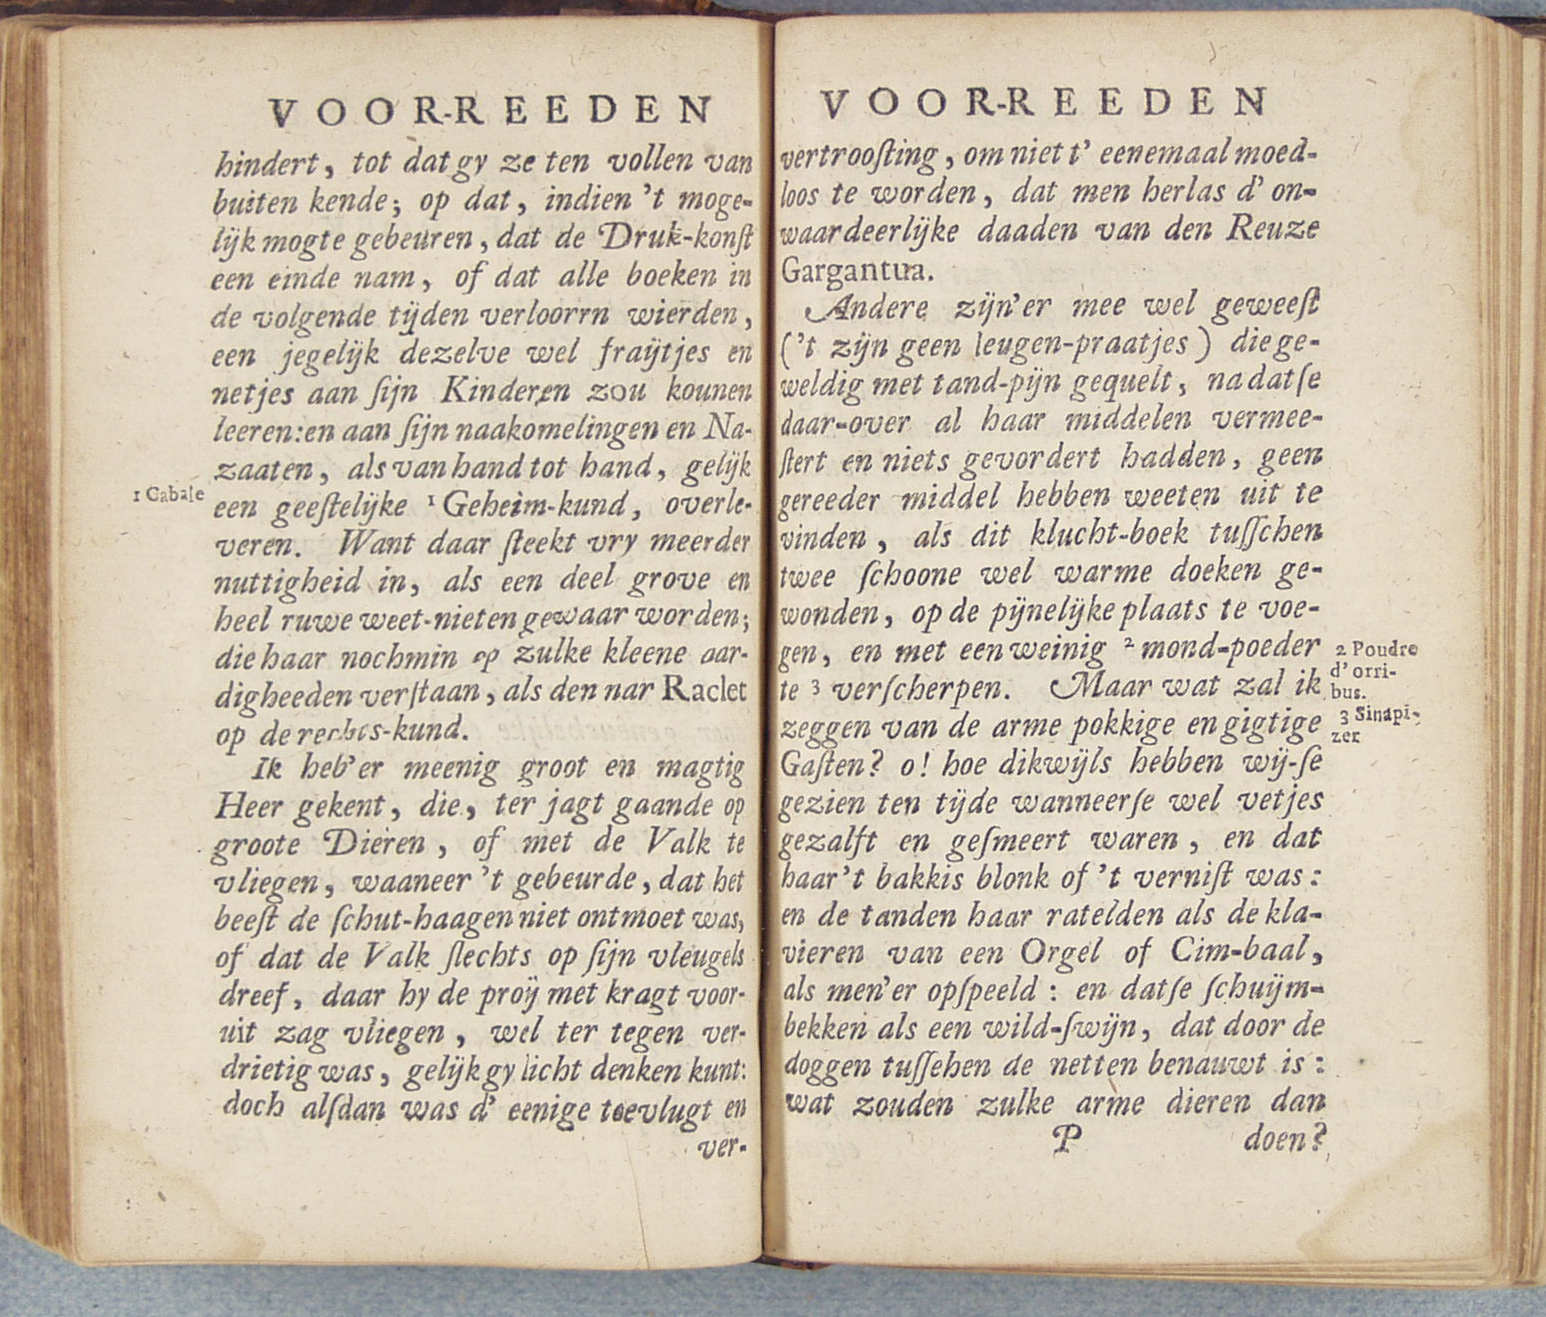 VOOR-REEDEN
hindert, tot dat gy ze ten vollen van
buiten kende; op dat, indien 't moge-
lijk mogte gebeuren, dat de Druk-konſt
een einde nam, of dat alle boeken in
de volgende tijden verloorrn wierden,
een jegelijk dezelve wel fraijtjes en
netjes aan ſijn Kinderen zou kounen
leeren: en aan ſijn naakomelingen en Na-
zaaten, als van hand tot hand, gelijk
1 Cabale
een geeſtelijke ¹ Geheim-kund, overle-
veren. Want daar ſteekt vry meerder
nuttigheid in, als een deel grove en
heel ruwe weet-nieten gewaar worden;
die haar nochmin op zulke kleene aar-
digheeden verſtaan, als den nar Raclet
op de rechts-kund.
Ik heb'er meenig groot en magtig
Heer gekent, die, ter jagt gaande op
groote Dieren, of met de Valk te
vliegen, waaneer 't gebeurde, dat het
beeſt de ſchut-haagen niet ontmoet was,
of dat de Valk ſlechts op ſijn vleugels
dreef, daar hy de proij met kragt voor-
uit zag vliegen, wel ter tegen ver-
drietig was, gelijk gy licht denken kunt:
doch alſdan was d' eenige toevlugt en
ver-
VOOR-REEDEN
vertrooſting, om niet t' eenemaal moed-
loos te worden, dat men herlas d' on-
waardeerlijke daaden van den Reuze
Gargantua.
Andere zijn'er mee wel geweeſt
('t zijn geen leugen-praatjes) die ge-
weldig met tand-pijn gequelt, na datſe
daar-over al haar middelen vermee-
ſtert en niets gevordert hadden, geen
gereeder middel hebben weeten uit te
vinden, als dit klucht-boek tuſſchen
twee ſchoone wel warme doeken ge-
wonden, op de pijnelijke plaats te voe-
gen, en met een weinig ² mond-poeder
te ³ verſcherpen. Maar wat zal ik
zeggen van de arme pokkige en gigtige
Gaſten? o! hoe dikwijls hebben wij-ſe
gezien ten tijde wanneerſe wel vetjes
gezalft en geſmeert waren, en dat
haar 't bakkis blonk of 't verniſt was:
en de tanden haar ratelden als de kla-
vieren van een Orgel of Cim-baal,
als men'er opſpeeld: en datſe ſchuijm-
bekken als een wild-ſwijn, dat door de
doggen tuſſehen de netten benauwt is:
wat zouden zulke arme dieren dan
P doen?
2 Poudre
d' orri-
bus.
3 Sinapi-
zer